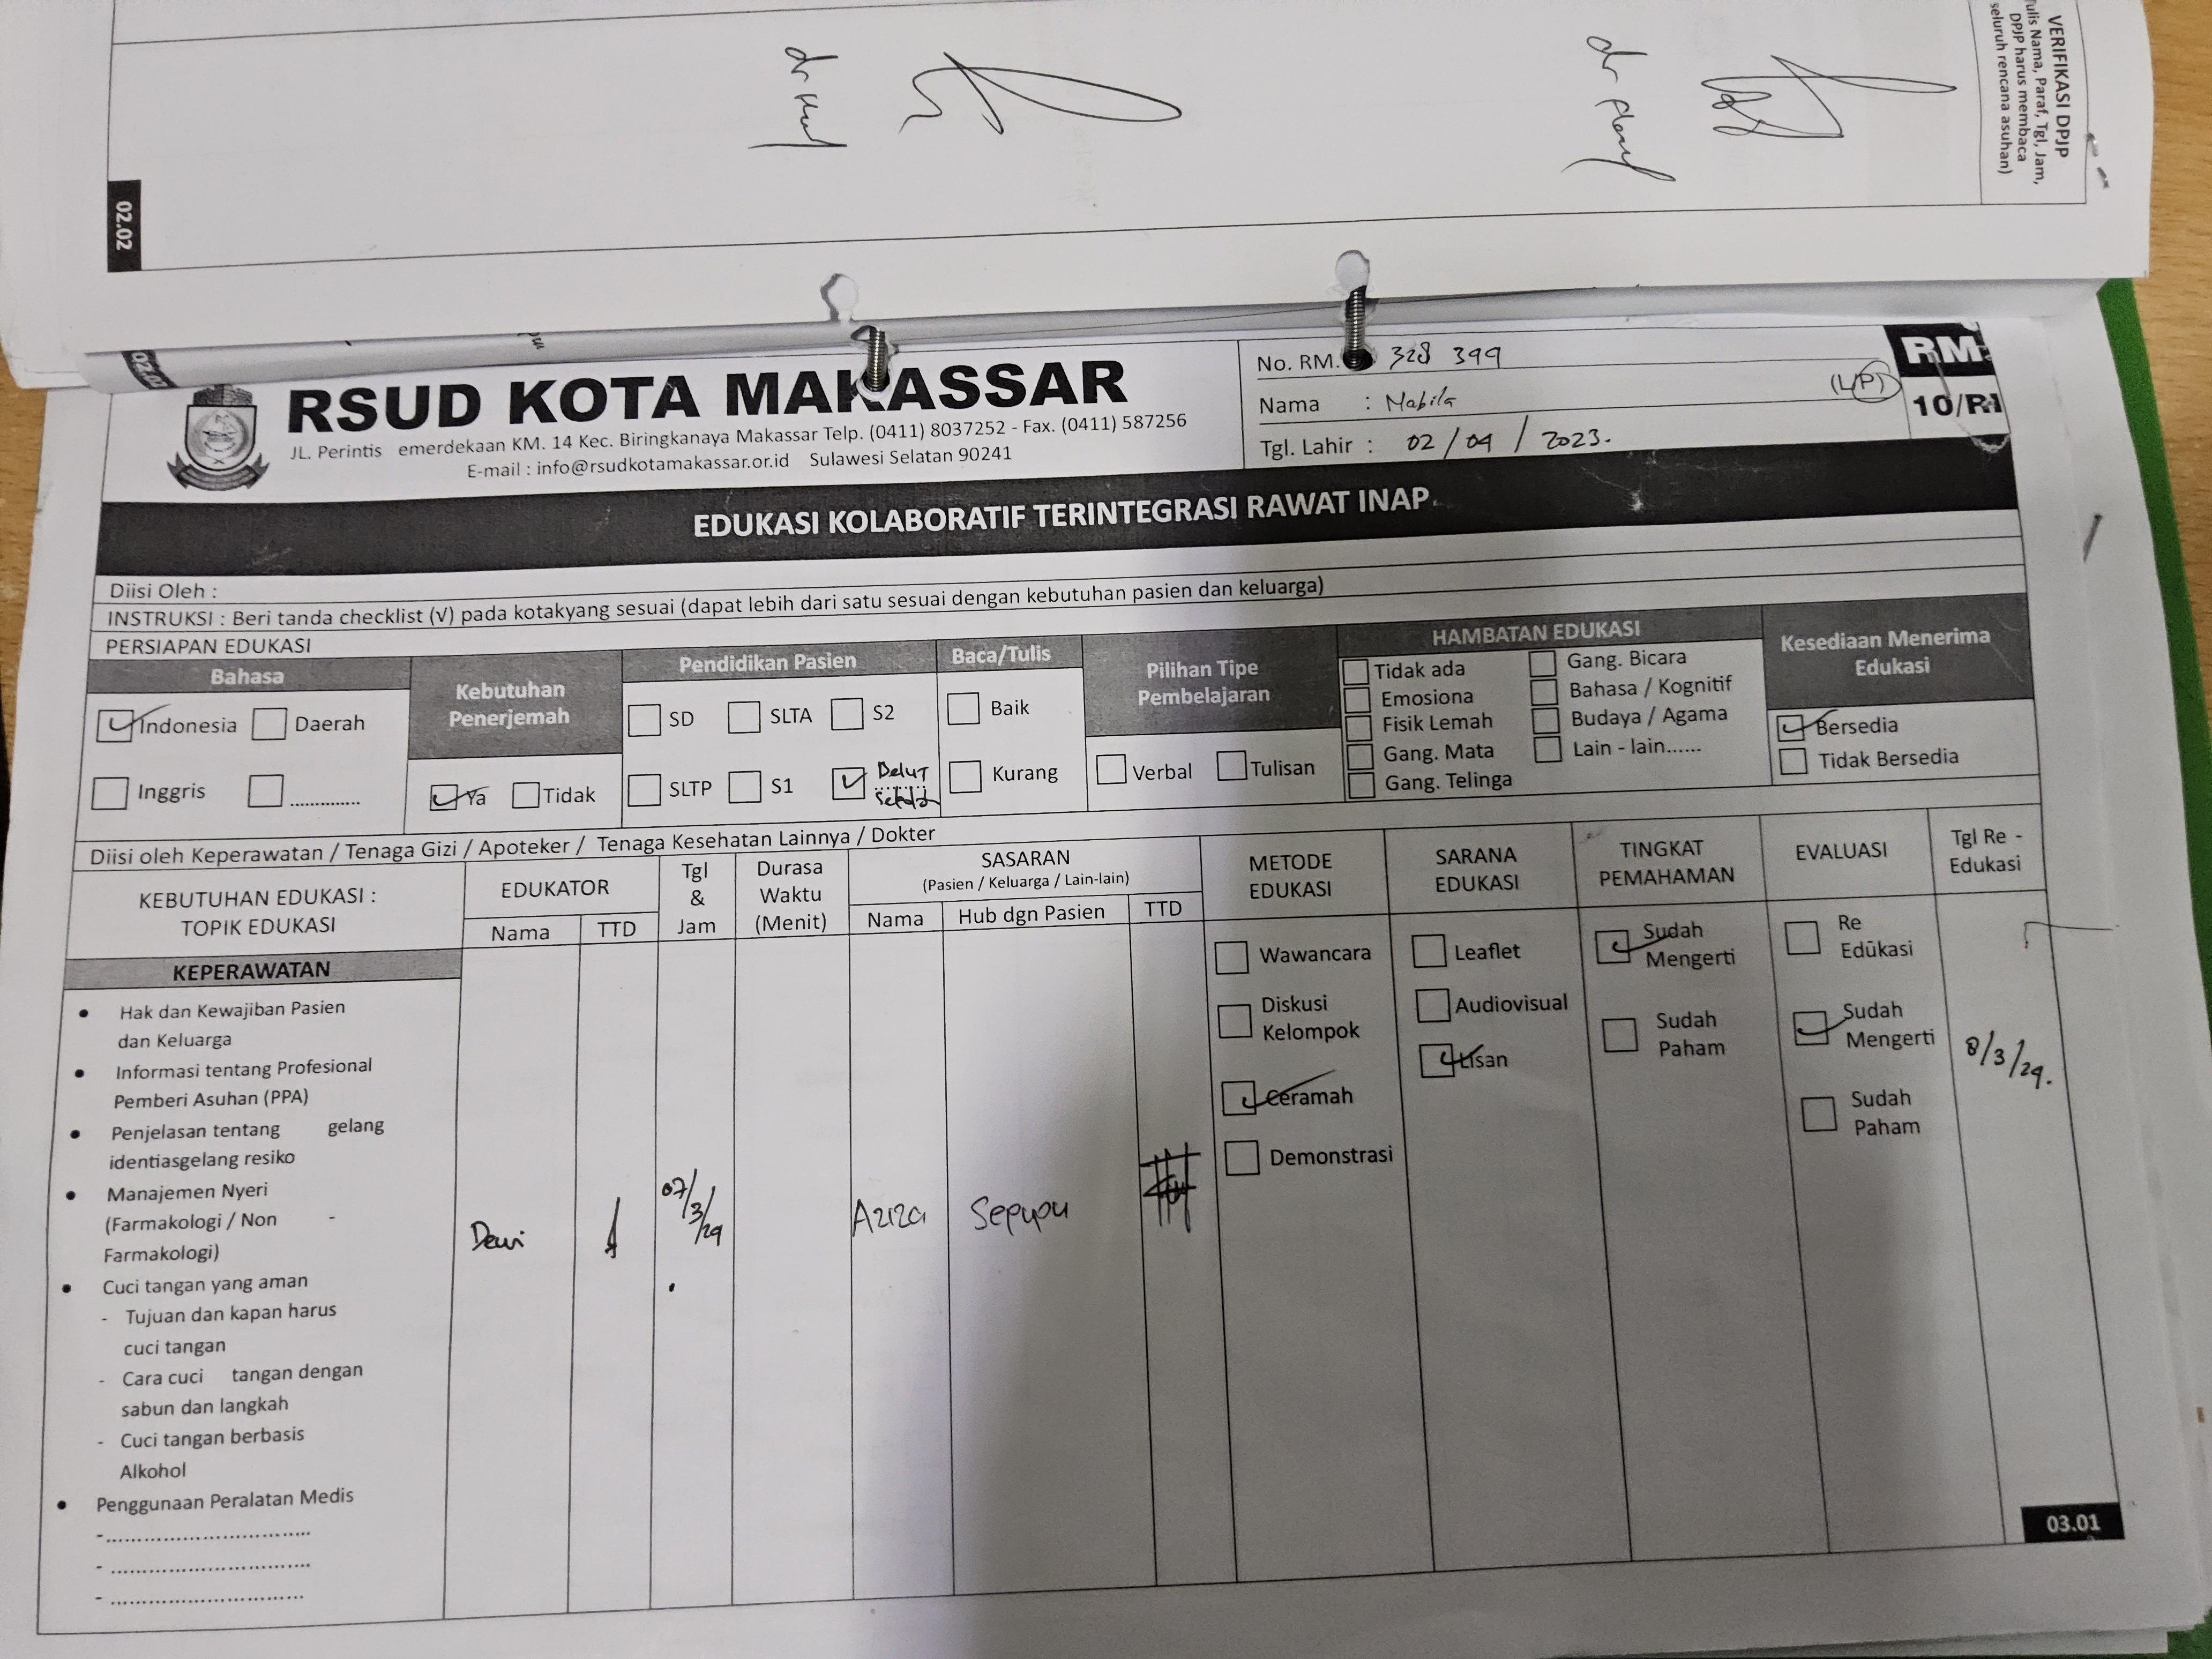 VERIFIKASI DPJP
Tulis Nama, Paraf, Tgl, Jam,
DPJP harus membaca
seluruh rencana asuhan)
dr
dr
02.02
RSUD KOTA MAKASSAR
JL. Perintis emerdekaan KM. 14 Kec. Biringkanaya Makassar Telp. (0411) 8037252 - Fax. (0411) 587256
E-mail : info@rsudkotamakassar.or.id Sulawesi Selatan 90241
No. RM. 328 399
Nama : Nabila (L/P)
Tgl. Lahir : 02 / 04 / 2023.
RM
10/RI
EDUKASI KOLABORATIF TERINTEGRASI RAWAT INAP
Diisi Oleh :
INSTRUKSI : Beri tanda checklist (√) pada kotakyang sesuai (dapat lebih dari satu sesuai dengan kebutuhan pasien dan keluarga)
PERSIAPAN EDUKASI
Bahasa
Indonesia Daerah
Inggris ..............
Kebutuhan
Penerjemah
Ya Tidak
Pendidikan Pasien
SD SLTA S2
SLTP S1 Belum
Sekolah
Baca/Tulis
Baik
Kurang
Pilihan Tipe
Pembelajaran
Verbal Tulisan
HAMBATAN EDUKASI
Tidak ada Gang. Bicara
Emosiona Bahasa / Kognitif
Fisik Lemah Budaya / Agama
Gang. Mata Lain - lain......
Gang. Telinga
Kesediaan Menerima
Edukasi
Bersedia
Tidak Bersedia
Diisi oleh Keperawatan / Tenaga Gizi / Apoteker / Tenaga Kesehatan Lainnya / Dokter
KEBUTUHAN EDUKASI :
TOPIK EDUKASI
EDUKATOR
Nama TTD
Tgl
&
Jam
Durasa
Waktu
(Menit)
SASARAN
(Pasien / Keluarga / Lain-lain)
Nama Hub dgn Pasien TTD
METODE
EDUKASI
SARANA
EDUKASI
TINGKAT
PEMAHAMAN
EVALUASI
Tgl Re -
Edukasi
KEPERAWATAN
• Hak dan Kewajiban Pasien
dan Keluarga
• Informasi tentang Profesional
Pemberi Asuhan (PPA)
• Penjelasan tentang gelang
identiasgelang resiko
• Manajemen Nyeri
(Farmakologi / Non -
Farmakologi)
• Cuci tangan yang aman
- Tujuan dan kapan harus
cuci tangan
- Cara cuci tangan dengan
sabun dan langkah
- Cuci tangan berbasis
Alkohol
• Penggunaan Peralatan Medis
-.................................
- ................................
- ...............................
Dewi
07/3/24
Aziza Sepupu
Wawancara
Diskusi
Kelompok
Ceramah
Demonstrasi
Leaflet
Audiovisual
Lisan
Sudah
Mengerti
Sudah
Paham
Re
Edukasi
Sudah
Mengerti
Sudah
Paham
8/3/24.
03.01